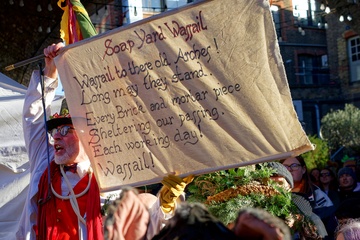 Soap Yard Wassail
Wassail to there old Arches!
Long may they stand.
Every Brick and mortar piece
Sheltering our passing.
Each working day!
Wassail!